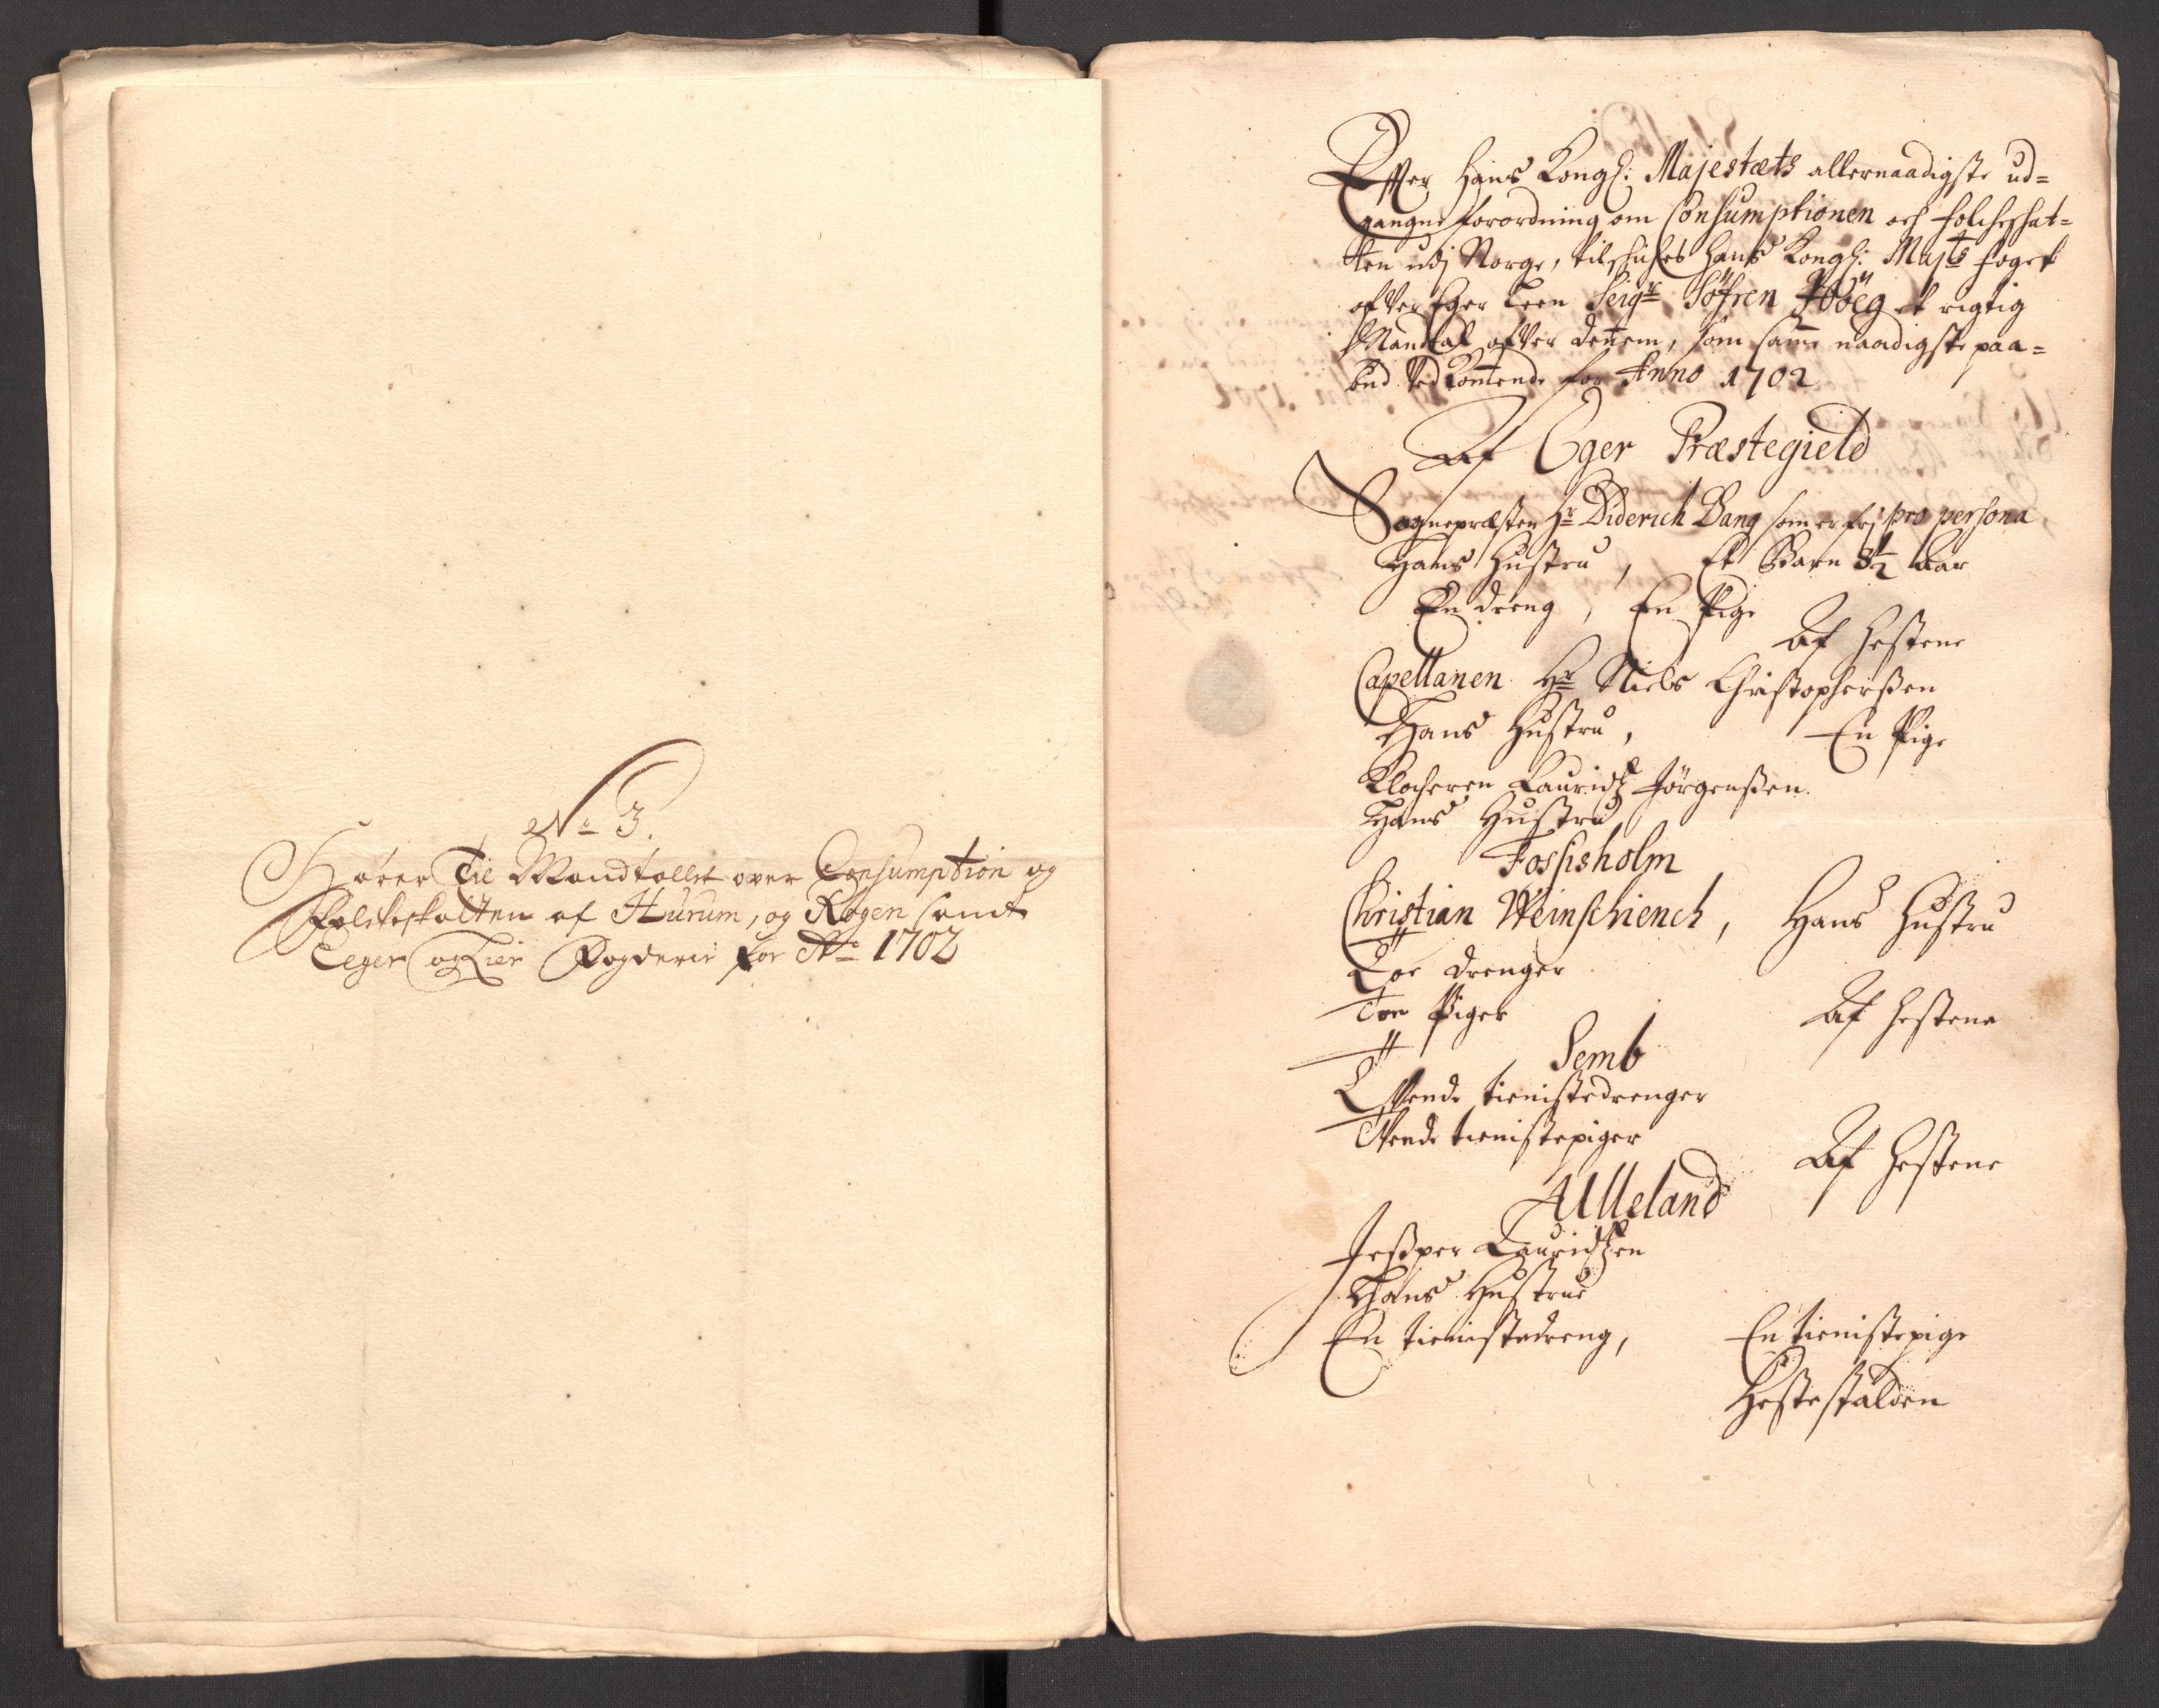 No 3.
Hører Til Mandtallet over Consumption og
Folkeskatten af Hurum, og Røgen samt
Eger og Lier Fogderie for Ao 1702
Efter Hans Kongl: Majestæts allernaadigste ud=
gangne forordning om Consumptionen och folcheskat=
ten udj Norge, tilschickes Hans Kongl: Majts foget
ofver Eger Leen Seigr Söfren Hööeg et rigtig
Mandtal ofver dennem, som samme naadigste paa=
bud Vedkommende for Anno 1702
Af Eger Præstegield
Sognepræsten Hr Diderich Bang som er frj pro persona,
Hans Hustru, Et Barn 8½ Aar
En dreng, En Pige
Af Hestene
Capellanen Hr Niels Christopherßen
Hans Hustru, En Pige
Klocheren Lauridtz Jörgenßen.
Hans Hustru
Fossisholm
Christian Weinschiench, Hans Hustru
Toe drenger
Toe Piger Af Hestene
Semb
Tvende tienistedrenger
Tvende tienistepiger
Af Hestene
Ulleland
Jeßper Lauridtzen
Hans Hustrue
En tienistedreng, En tienistepige
Hestestalden